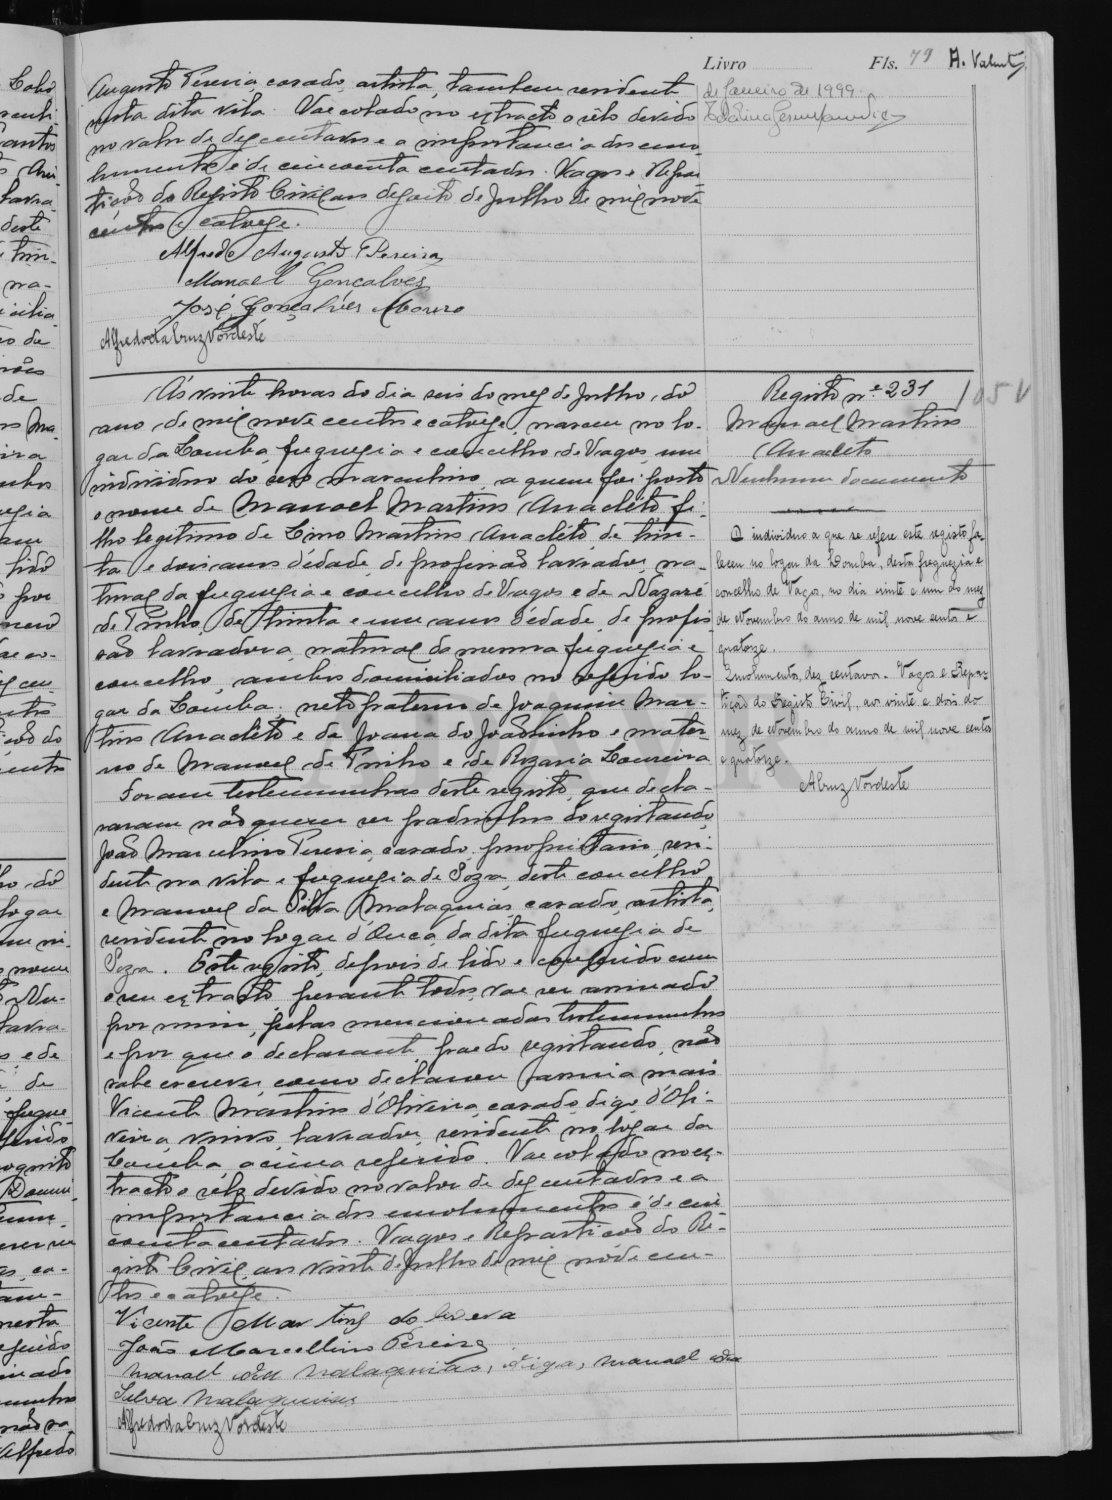 Livro Fls. 79 A. Valente
Augusto Pereira, casado, artista, tambem residente
nesta dita vila. Vae colado no extracto o sêlo devido
no valor de dez centavos e a importancia dos emo-
lumentos é de cincoenta centavos. Vagos e Repar-
tição do Registo Civil aos dezoito de Julho de mil nove
centos e catorze.
Alfredo Augusto Pereira
Manoel Gonçalves
José Gonçalves Moreno
Alfredo da Cruz Nordeste
de Janeiro de 1999.
Ás vinte horas do dia seis do mez de Julho, do
ano de mil nove centos e catorze, nasceu no lo-
gar da Lomba, freguezia e concelho de Vagos, um
individuo do sexo masculino, a quem foi posto
o nome de Manoel Martins Anacléto, fi-
lho legitimo de Martins Anacléto, de trin-
ta e dois anos d'edade, de profissão lavrador, na-
tural da freguezia e concelho de Vagos e de Nazaré
de Pinho, de trinta e um anos d'edade, de profis-
são lavradora, natural da mesma freguezia e
concelho, ambos domiciliados no referido lo-
gar da Lomba. neto paterno de Joaquim Mar-
tins Anacléto e de Joana do Joãosinho e mater-
no de Manoel de Pinho e de Rozaria Loureira
Foram testemunhas deste registo, que decla-
raram não querer ser padrinhos do registando,
João Marcelino Pereira, casado, proprietario, resi-
dente na vila e freguezia de Soza, deste concelho
e Manoel da Silva Malaquias, casado, artista,
residente no logar d'Ouca, da dita freguezia de
Soza. Este registo, depois de lido e conferido com
o seu extracto perante todos, vae ser assinado
por mim, pelas mencionadas testemunhas
e por que o declarante, pae do registando, não
sabe escrever, como declarou assina mais
Vicente Martins d'Oliveira, casado, digo, d'Oli-
veira, viuvo, lavrador, residente no logar da
Lomba, acima referido. Vae colado no ex-
tracto o sêlo devido no valor de dez centavos e a
importancia dos emolumentos é de cin
coenta centavos. Vagos e Repartição do Re-
gisto Civil, aos vinte de Julho de mil nove cen-
tos e catorze.
Vicente Martins doliveira
João Marcellino Pereira
manoel da malaquias, diga, manoel da
Silva malaquias
Alfredo da Cruz Nordeste
Registo n.º 231
105 V
Manoel Martins
Anacléto
Nenhum documento
O individuo a que se refere este registo fa-
leceu no logar da Lomba, desta freguezia e
concelho de Vagos, no dia vinte e um do mez
de Novembro do anno de mil nove centos e
quatorze.
Emolumentos, dez centavos. Vagos e Repar-
tição do Registo Civil, aos vinte e dois do
mez de Novembro do anno de mil nove centos
e quatorze.
ACruz Nordeste